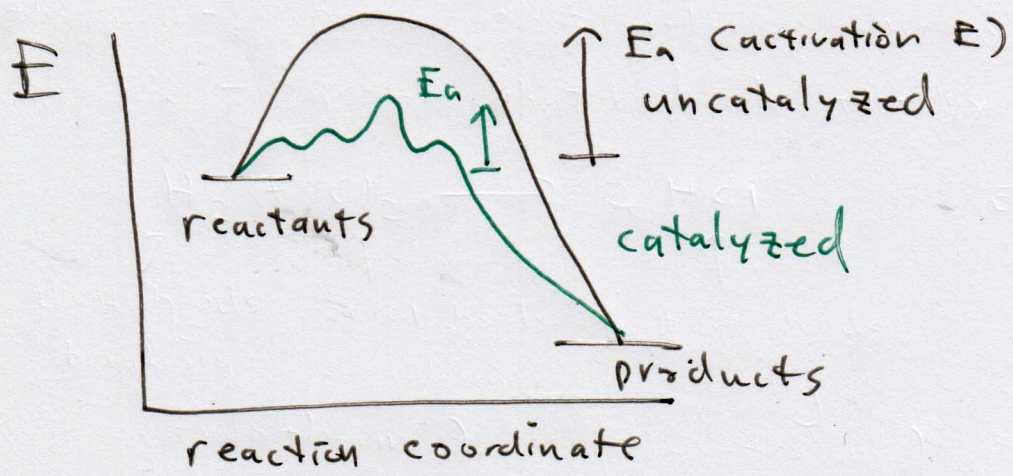 E
Ea (activation E)
uncatalyzed
Ea
reactants
catalyzed
products
reaction coordinate